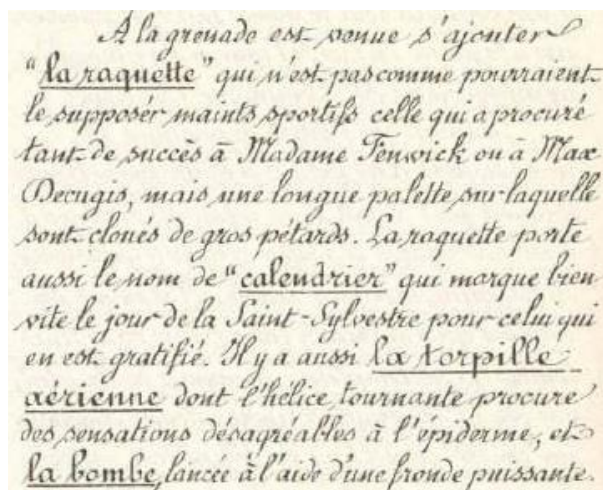 A la grenade est venue s'ajouter
"la raquette" qui n'est pas comme pourraient
le supposer maints sportifs celle qui a procuré
tant de succès à Madame Fenwick ou à Max
Decugis, mais une longue palette sur laquelle
sont cloués de gros pétards. La raquette porte
aussi le nom de "calendrier" qui marque bien
vite le jour de la Saint-Sylvestre pour celui qui
en est gratifié. Il y a aussi la torpille
aérienne dont l'hélice tournante procure
des sensations désagréables à l'épiderme, et
la bombe, lancée à l'aide d'une fronde puissante.